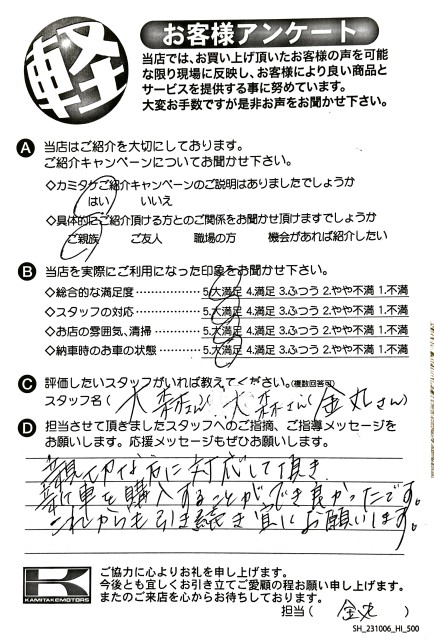 軽
お客様アンケート
当店では、お買い上げ頂いたお客様の声を可能
な限り現場に反映し、お客様により良い商品と
サービスを提供する事に努めています。
大変お手数ですが是非お声をお聞かせ下さい。
A 当店はご紹介を大切にしております。
ご紹介キャンペーンについてお聞かせ下さい。
◇カミタケご紹介キャンペーンのご説明はありましたでしょうか
はい いいえ
◇具体的にご紹介頂ける方とのご関係をお聞かせ頂けますでしょうか
ご親族 ご友人 職場の方 機会があれば紹介したい
B 当店を実際にご利用になった印象をお聞かせ下さい。
◇総合的な満足度…………… 5.大満足 4.満足 3.ふつう 2.やや不満 1.不満
◇スタッフの対応…………… 5.大満足 4.満足 3.ふつう 2.やや不満 1.不満
◇お店の雰囲気、清掃……… 5.大満足 4.満足 3.ふつう 2.やや不満 1.不満
◇納車時のお車の状態……… 5.大満足 4.満足 3.ふつう 2.やや不満 1.不満
C 評価したいスタッフがいれば教えてください。(複数回答可)
スタッフ名( 大森さん( 大森さん( 金丸さん)
D 担当させて頂きましたスタッフへのご指摘、ご指導メッセージを
お願いします。応援メッセージもぜひお願いします。
親切な方に対応して頂き
新車を購入することができ良かったです。
これからも引き続き宜しくお願いします。
K
KAMITAKEMOTORS
ご協力に心よりお礼を申し上げます。
今後とも宜しくお引き立てご愛顧の程お願い申し上げます。
またのご来店を心からお待ちしております。
担当( 金丸 )
SH_231006_HI_500